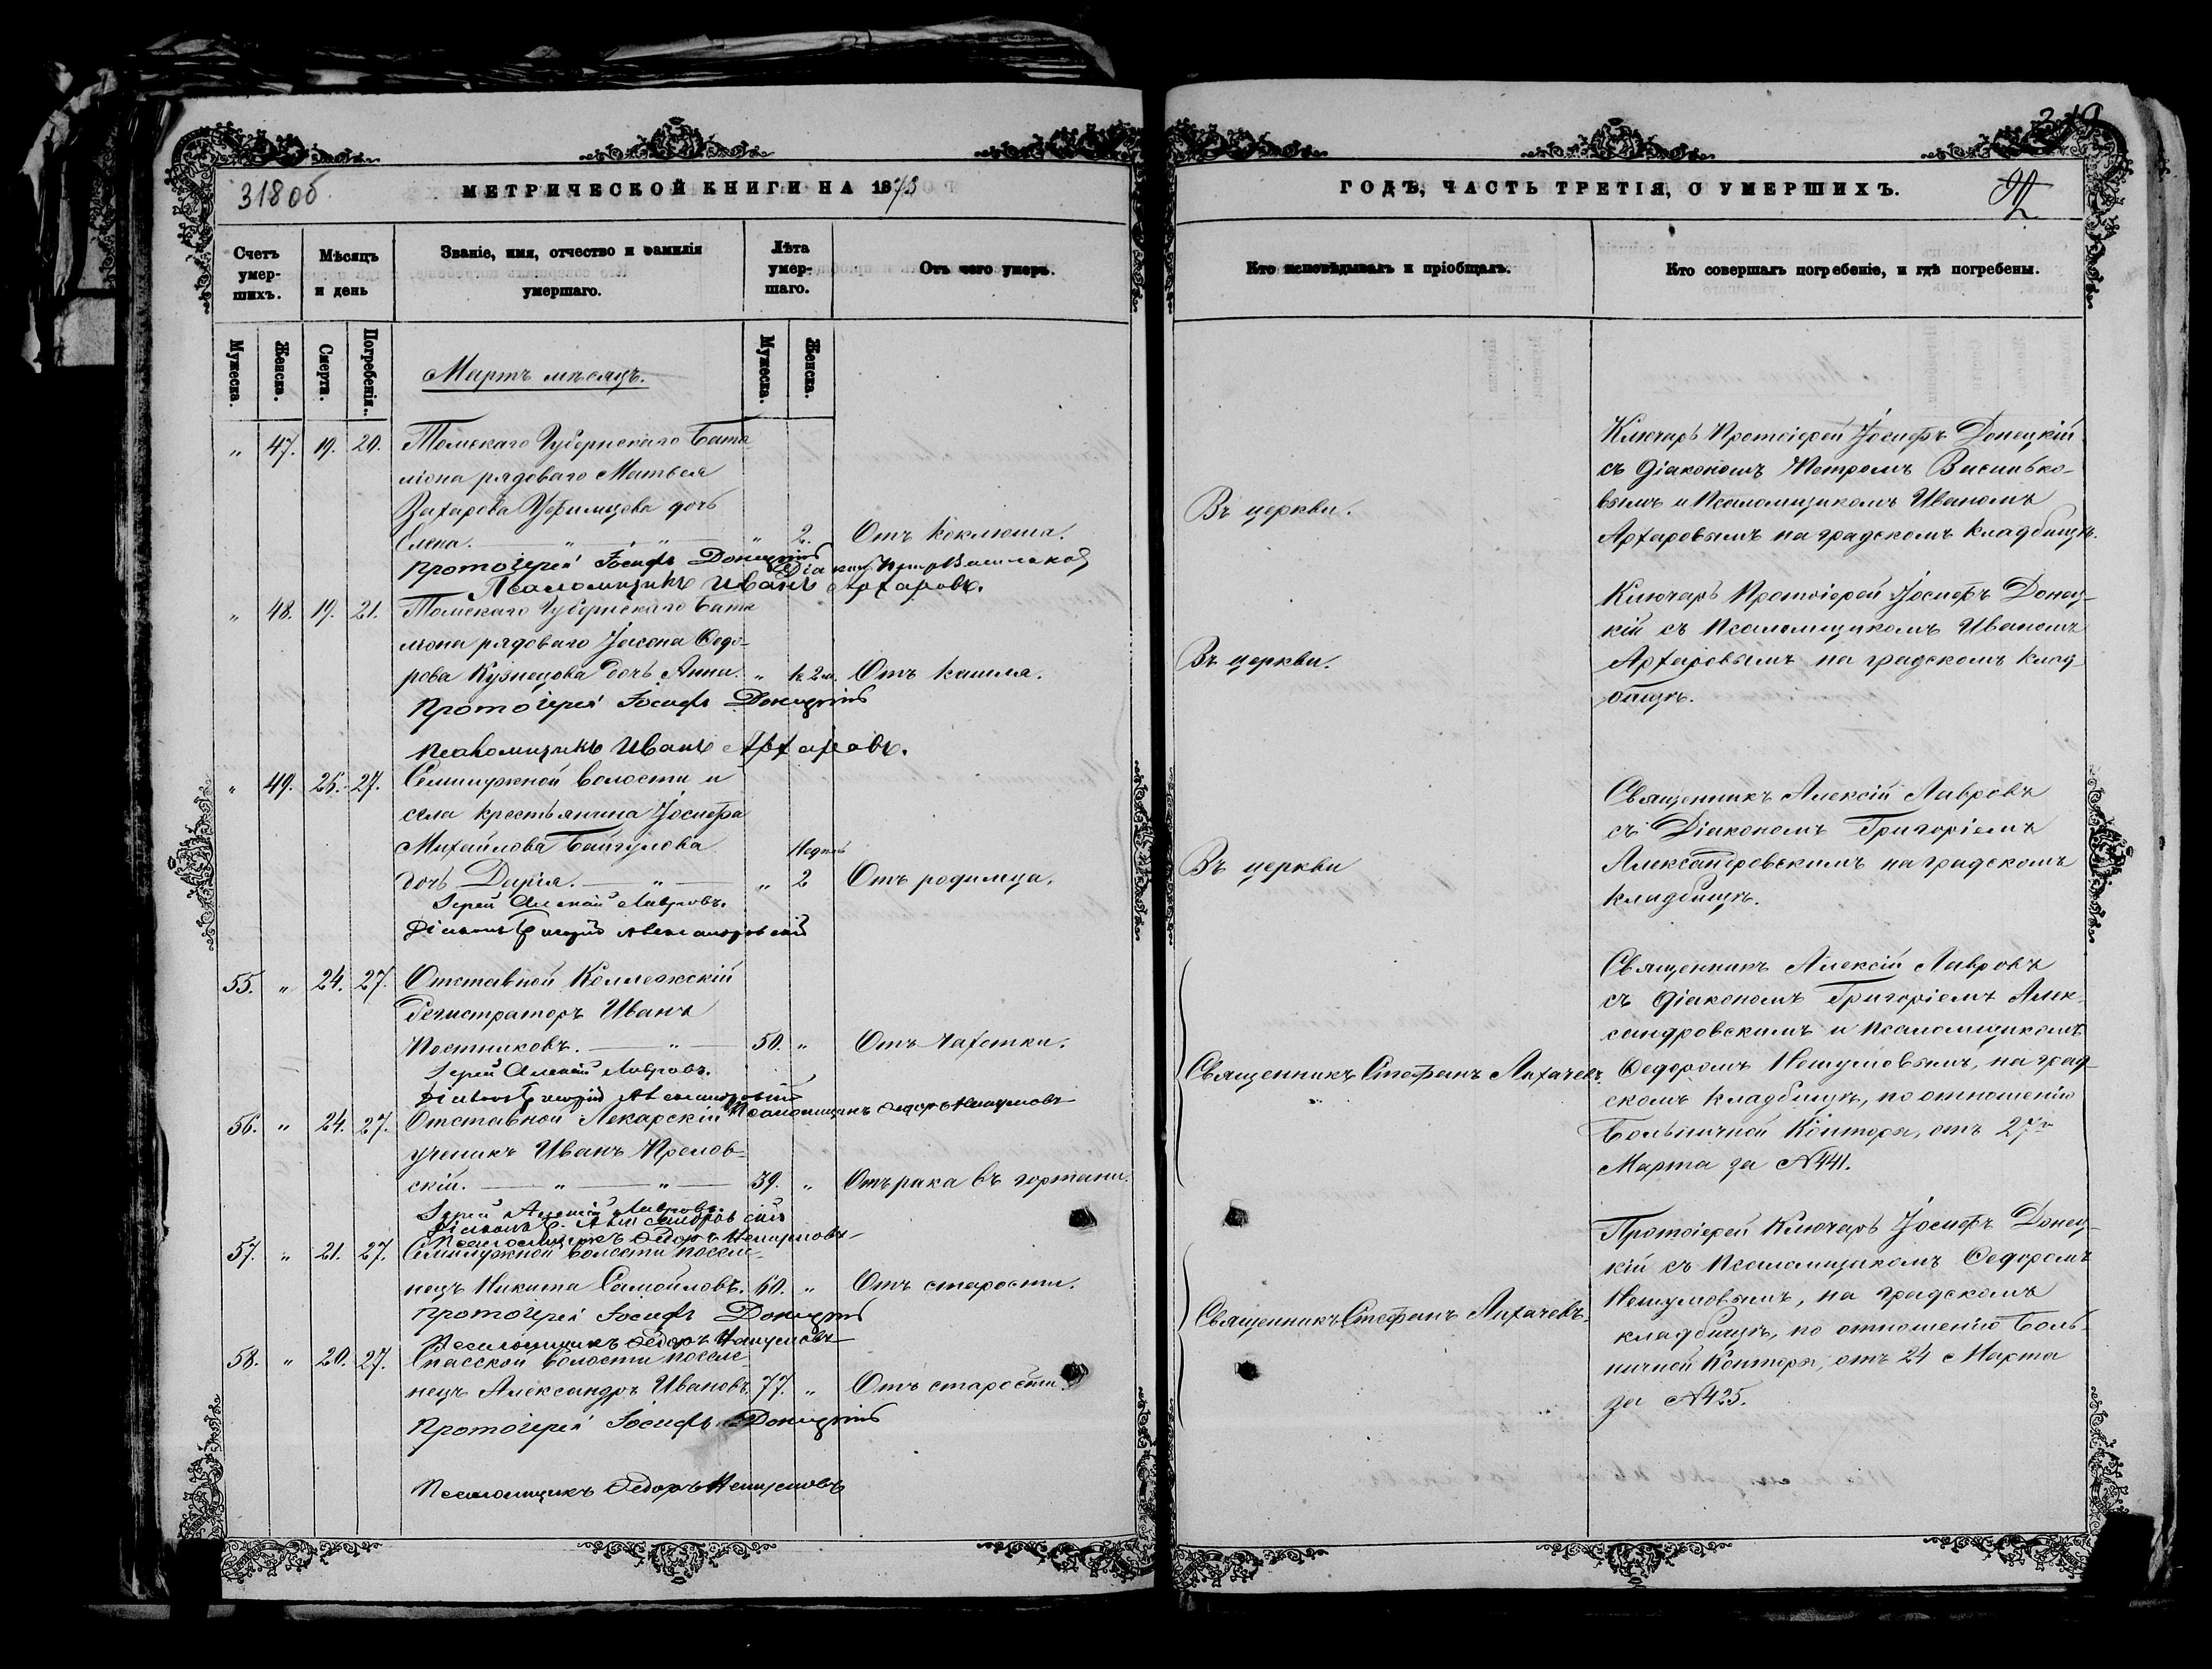 318об
МЕТРИЧЕСКОЙ КНИГИ НА 1873
Счетъ умер-шихъ.
Мѣсяцъ и день
Званіе, имя, отчество и фамилія умершаго.
Лѣта умер-шаго.
Отъ чего умеръ.
Мужеска.
Женска.
Смерти.
Погребенія.
Мужеска.
Женска.
Мартъ мѣсяцъ.
" 47. 19. 20. Томскаго Губернскаго Бата
ліона рядоваго Матвея
Захарова дочь
Елена. — " — " — " 2. Отъ коклюша.
Протоіерей Іосифъ Донецкій
Діаконъ Петръ Васильковъ
Псаломщикъ Иванъ Архаровъ.
" 48. 19. 21. Томскаго Губернскаго Бата
ліона рядоваго Федо-
рова Кузнецова дочь Анна. " Отъ кашля.
Протоіерей Іосифъ Донецкій
Псаломщикъ Иванъ Архаровъ.
" 49. 25. 27. Семилужной волости и
села крестьянина Іосифа
Михайлова Байгулова
дочь Дарія. — " — " Недѣль 2 Отъ родимца.
Іерей Алексій Лавровъ.
Діаконъ Григорій Александровскій
55. " 24. 27. Отставной Коллежскій
Регистраторъ Иванъ
Постниковъ. — " — 50. " Отъ чахотки.
Іерей Алексій Лавровъ.
Діаконъ Григорій Александровскій
Псаломщикъ Федоръ Нешумовъ
56. " 24. 27. Отставной Лекарскій
ученикъ Иванъ
скій. — " — " — 39. " Отъ рака въ гортани.
Іерей Алексій Лавровъ.
Діаконъ Г. Александровскій
Псаломщикъ Федоръ Нешумовъ
57. " 21. 27. Семилужной волости поселе-
нецъ Никита Самойловъ. 60. " Отъ старости.
Протоіерей Іосифъ Донецкій
Псаломщикъ Федоръ Нешумовъ
58. " 20. 27. Спасской волости поселе-
нецъ Александръ Ивановъ. 77. " Отъ старости.
Протоіерей Іосифъ Донецкій
Псаломщикъ Федоръ Нешумовъ
319
ГОДЪ, ЧАСТЬ ТРЕТІЯ, О УМЕРШИХЪ.
Кто исповѣдывалъ и пріобщалъ.
Кто совершалъ погребеніе, и гдѣ погребены.
Въ церкви.
Ключарь Протоіерей Іосифъ Донецкій
съ Діакономъ Петромъ Василько-
вымъ и Псаломщикомъ Иваномъ
Архаровымъ на градскомъ кладбищѣ.
Въ церкви.
Ключарь Протоіерей Іосифъ Донец-
кій съ Псаломщикомъ Иваномъ
Архаровымъ на градскомъ клад-
бищѣ.
Въ церкви
Священникъ Алексій Лавровъ
съ Діакономъ Григоріемъ
Александровскимъ на градскомъ
кладбищѣ.
Священникъ Стефанъ Лихачевъ.
Священникъ Алексій Лавровъ
съ Діакономъ Григоріемъ Алек-
сандровскимъ и Псаломщикомъ
Федоромъ Нешумовымъ, на град-
скомъ кладбищѣ, по отношенію
Больничной Конторы, отъ 27го
Марта за №441.
Священникъ Стефанъ Лихачевъ.
Протоіерей Ключарь Іосифъ Донец-
кій съ Псаломщикомъ Федоромъ
Нешумовымъ, на градскомъ
кладбищѣ, по отношенію Боль-
ничной Конторы, отъ 24 Марта
за №425.